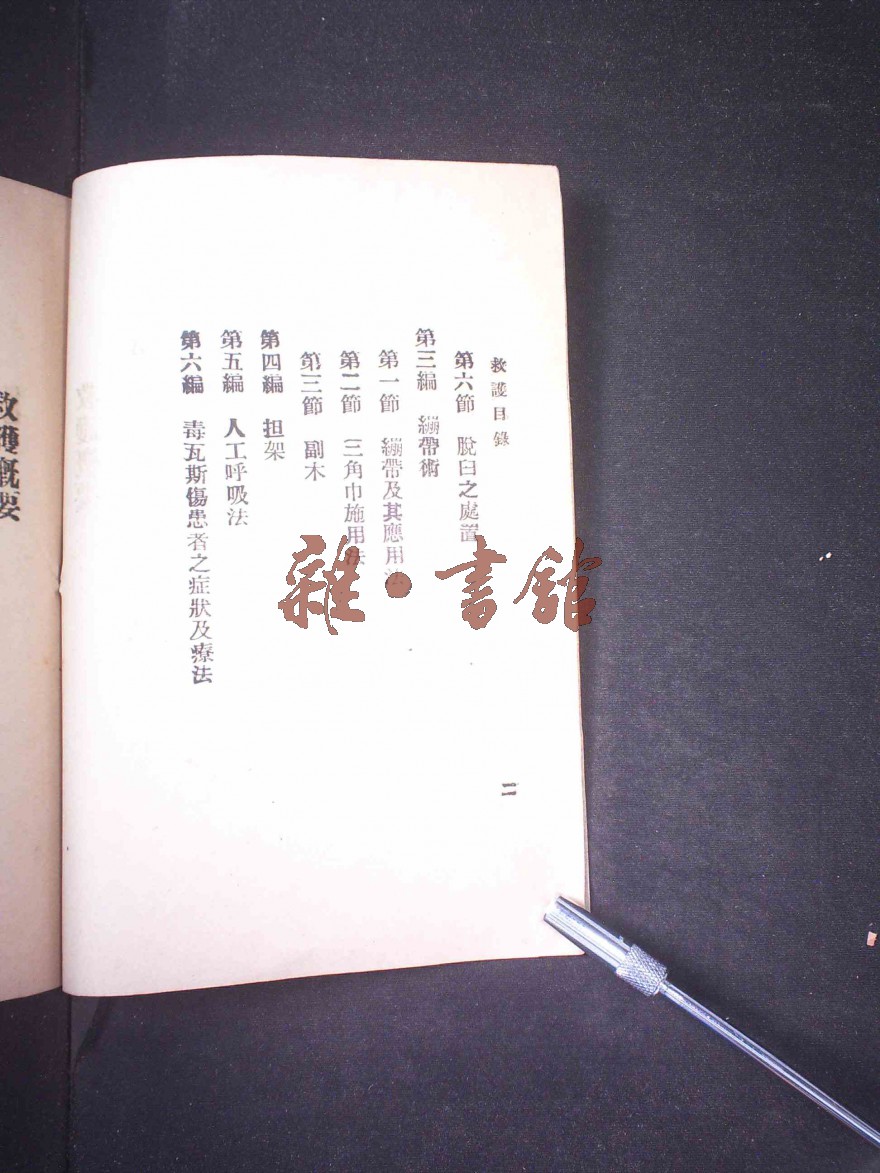 救護目錄
第六節　脫臼之處置
第三編　繃帶術
第一節　繃帶及其應用法
第二節　三角巾施用法
第三節　副木
第四編　担架
第五編　人工呼吸法
第六編　毒瓦斯傷患者之症狀及療法
二
救護概要
雜·書館